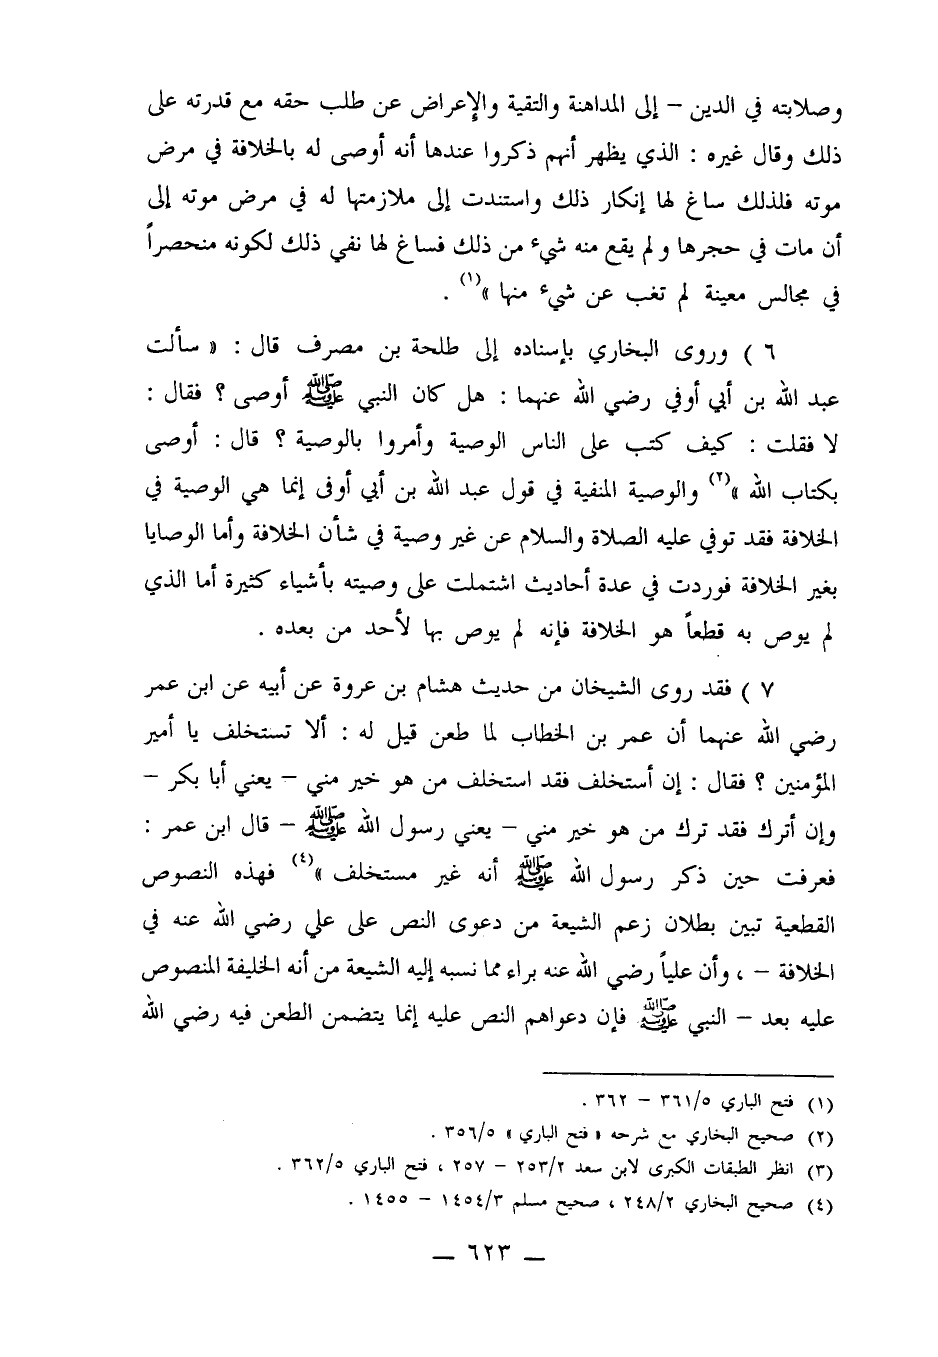 وصلابته في الدين – إلى المداهنة والتقية والإعراض عن طلب حقه مع قدرته على
ذلك وقال غيره : الذي يظهر أنهم ذكروا عندها أنه أوصى له بالخلافة في مرض
موته فلذلك ساغ لها إنكار ذلك واستندت إلى ملازمتها له في مرض موته إلى
أن مات في حجرها ولم يقع منه شيء من ذلك فساغ لها نفي ذلك لكونه منحصراً
في مجالس معينة لم تغب عن شيء منها »(١) .
٦ ) وروى البخاري بإسناده إلى طلحة بن مصرف قال : « سألت
عبد الله بن أبي أوفي رضي الله عنهما : هل كان النبي ﷺ أوصى ؟ فقال :
لا فقلت : كيف كتب على الناس الوصية وأمروا بالوصية ؟ قال : أوصى
بكتاب الله »(٢) والوصية المنفية في قول عبد الله بن أبي أوفى إنما هي الوصية في
الخلافة فقد توفي عليه الصلاة والسلام عن غير وصية في شأن الخلافة وأما الوصايا
بغير الخلافة فوردت في عدة أحاديث اشتملت على وصيته بأشياء كثيرة أما الذي
لم يوص به قطعاً هو الخلافة فإنه لم يوص بها لأحد من بعده .
٧ ) فقد روى الشيخان من حديث هشام بن عروة عن أبيه عن ابن عمر
رضي الله عنهما أن عمر بن الخطاب لما طعن قيل له : ألا تستخلف يا أمير
المؤمنين ؟ فقال : إن أستخلف فقد استخلف من هو خير مني – يعني أبا بكر –
وإن أترك فقد ترك من هو خير مني – يعني رسول الله ﷺ – قال ابن عمر :
فعرفت حين ذكر رسول الله ﷺ أنه غير مستخلف »(٤) فهذه النصوص
القطعية تبين بطلان زعم الشيعة من دعوى النص على علي رضي الله عنه في
الخلافة – ، وأن علياً رضي الله عنه براء مما نسبه إليه الشيعة من أنه الخليفة المنصوص
عليه بعد – النبي ﷺ فإن دعواهم النص عليه إنما يتضمن الطعن فيه رضي الله
(١) فتح الباري ٣٦١/٥ – ٣٦٢ .
(٢) صحيح البخاري مع شرحه « فتح الباري » ٣٥٦/٥ .
(٣) انظر الطبقات الكبرى لابن سعد ٢٥٣/٢ – ٢٥٧ ، فتح الباري ٣٦٢/٥ .
(٤) صحيح البخاري ٢٤٨/٢ ، صحيح مسلم ١٤٥٤/٣ – ١٤٥٥ .
— ٦٢٣ —